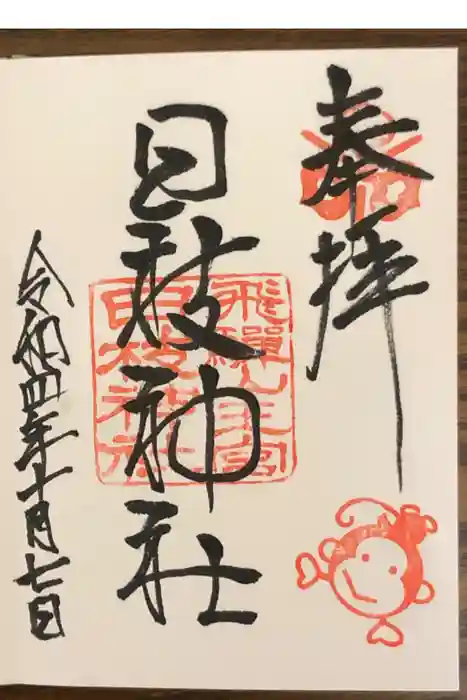 奉拝
日枝神社
飛騨山王宮
日枝神社
令和四年十月七日